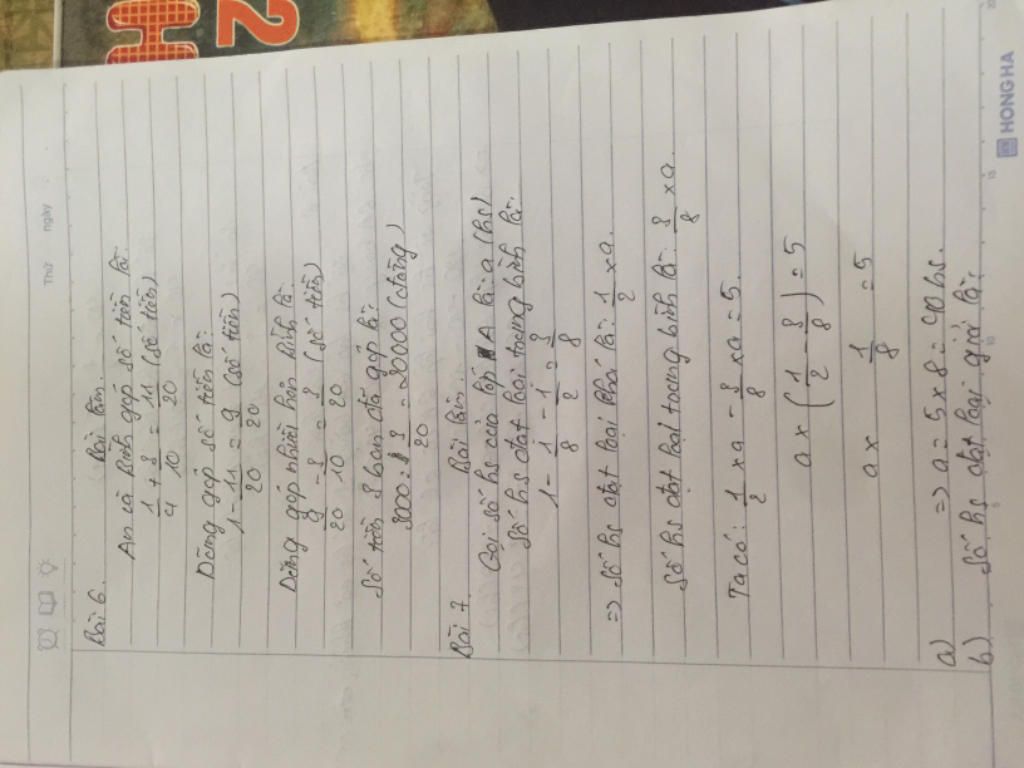 2
H
Thứ ngày
Bài 6. Bài làm.
An và Bình góp số tiền là:
1/4 + 3/10 = 11/20 (số tiền)
Dũng góp số tiền là:
1 - 11/20 = 9/20 (số tiền)
Dũng góp nhiều hơn Bình là:
9/20 - 3/10 = 3/20 (số tiền)
Số tiền 3 bạn đã góp là:
3000 : 3/20 = 20000 (đồng)
Bài 7. Bài làm.
Gọi số hs của lớp A là: a (hs)
Số hs đạt loại trung bình là:
1 - 1/8 - 1/2 = 3/8
=> Số hs đạt loại khá là: 1/2 x a.
Số hs đạt loại trung bình là: 3/8 x a.
Ta có: 1/2 x a - 3/8 x a = 5.
a x (1/2 - 3/8) = 5
a x 1/8 = 5
a) => a = 5 x 8 = 40 hs.
b) Số hs đạt loại giỏi là:
HONG HA